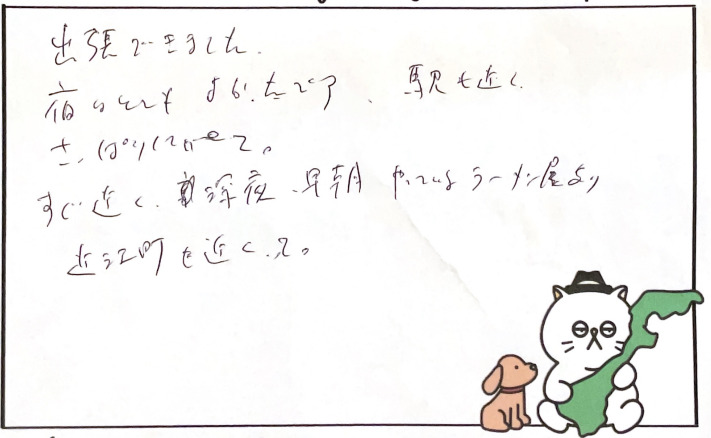 出張できました.
宿はとてもよかったです、駅も近く
さっぱりしていて。
すぐ近く、深夜、早朝やってるラーメン屋あり
近江町も近くて。